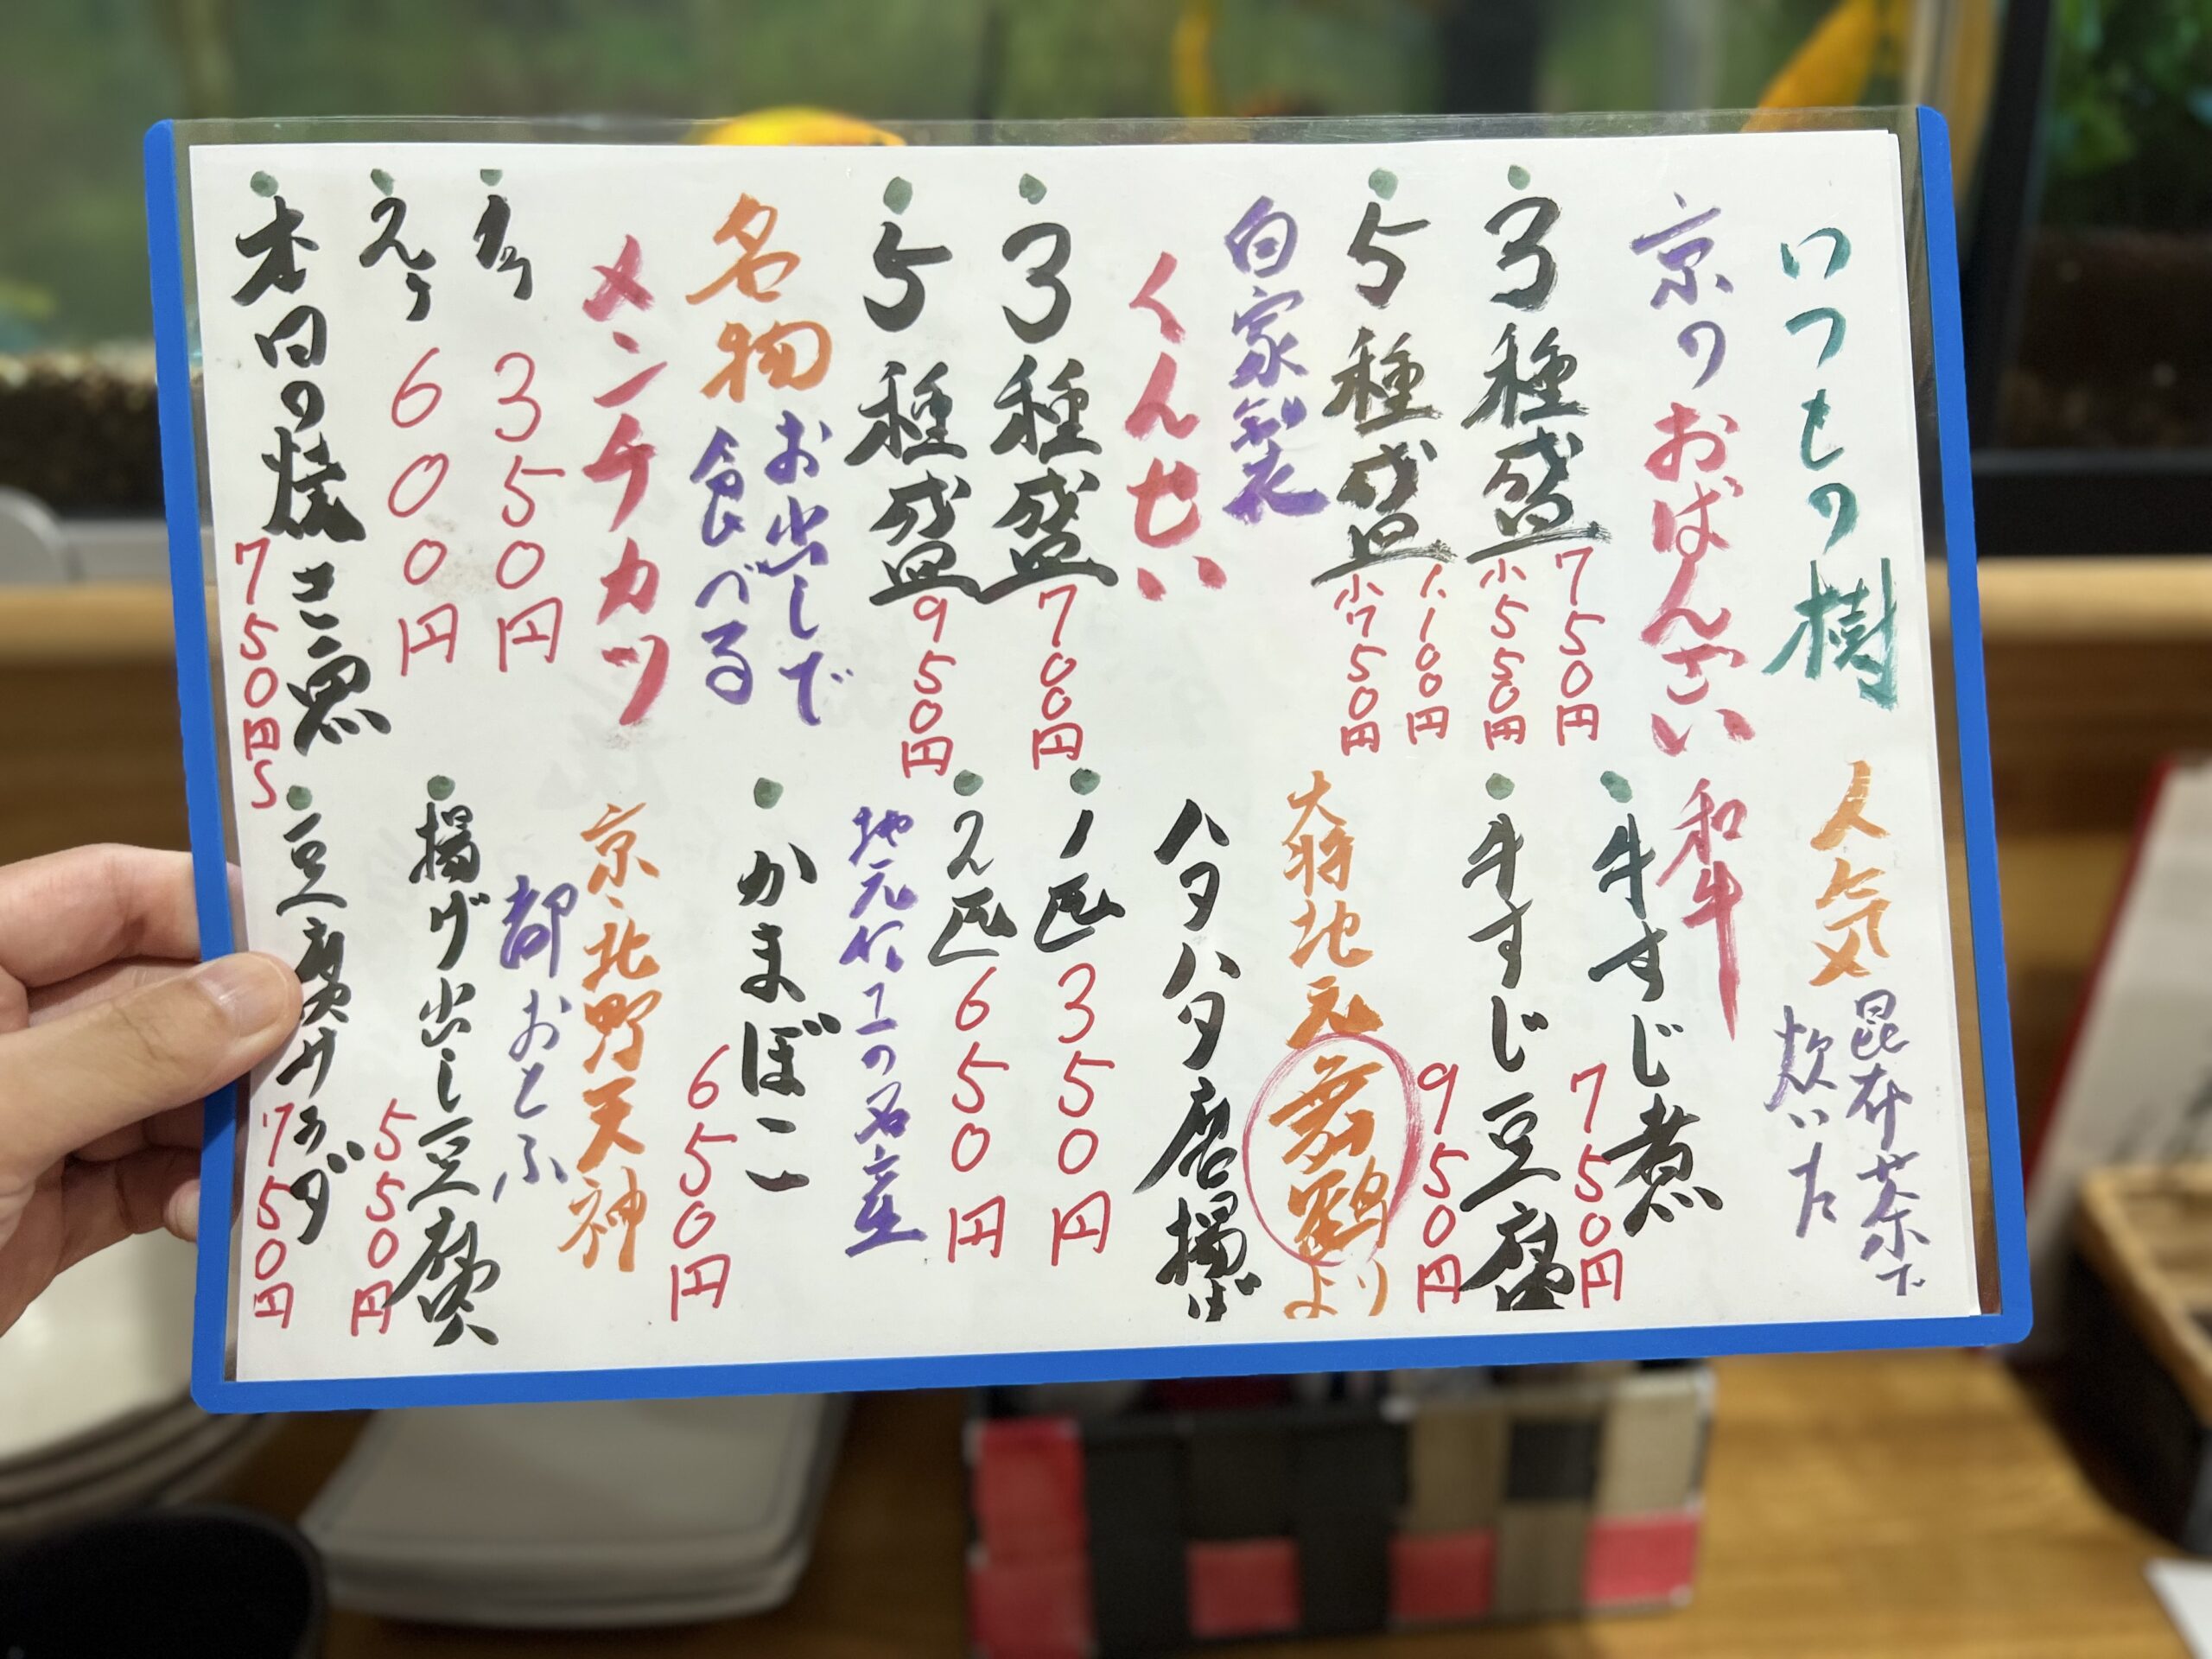 いつもの樹
京のおばんざい
3種盛
750円
小550円
5種盛
1,100円
小750円
自家製
くんせい
3種盛
700円
5種盛
950円
名物
お出しで
食べる
メンチカツ
1ヶ
350円
2ヶ
600円
本日の焼き魚
750円〜
人気
昆布茶で
炊いた
和牛
牛すじ煮
750円
牛すじ豆腐
950円
大将地元
舞鶴
より
ハタハタ唐揚げ
1匹
350円
2匹
650円
地元
の名産
かまぼこ
650円
京・北野天神
都おとふ
揚げ出し豆腐
550円
豆腐サラダ
750円